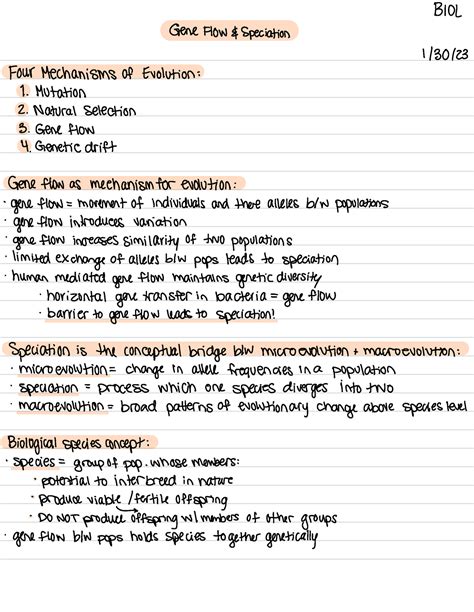 BIOL
Gene Flow & Speciation
1/30/23
Four Mechanisms of Evolution:
1. Mutation
2. Natural Selection
3. Gene flow
4. Genetic drift
Gene flow as mechanism for evolution:
· gene flow = movement of individuals and there alleles b/w populations
· gene flow introduces variation
· gene flow increases similarity of two populations
· limited exchange of alleles b/w pops leads to speciation
· human mediated gene flow maintains genetic diversity
· horizontal gene transfer in bacteria = gene flow
· barrier to gene flow leads to speciation!
Speciation is the conceptual bridge b/w microevolution + macroevolution:
· microevolution = change in allele frequencies in a population
· speciation = process which one species diverges into two
· macroevolution = broad patterns of evolutionary change above species level
Biological species concept:
· species = group of pop. whose members:
· potential to interbreed in nature
· produce viable/fertile offspring
· DO NOT produce offspring w/ members of other groups
· gene flow b/w pops holds species together genetically